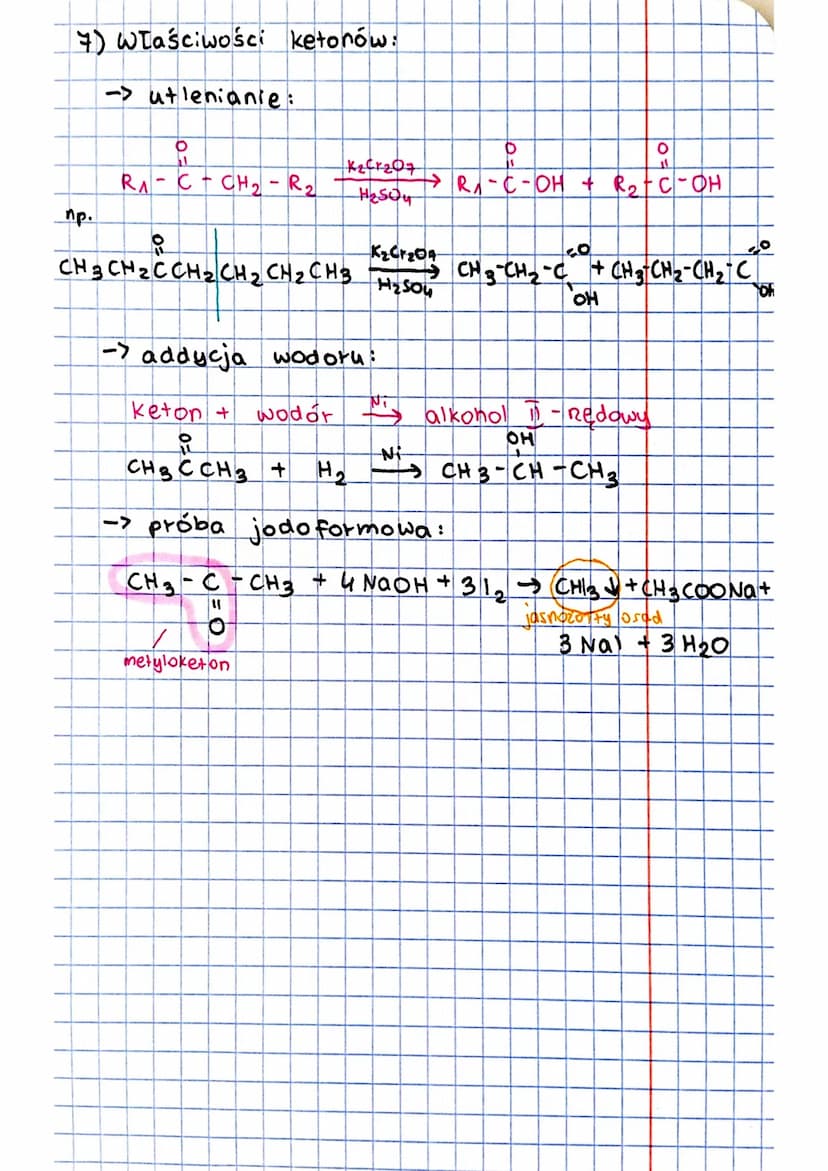 7) Właściwości ketonów:
-> utlenianie:
O O O
|| || ||
R1 - C - CH2 - R2 K2Cr2O7 → H2SO4 R1 - C - OH + R2 - C - OH
np.
O
||
CH3CH2CCH2CH2CH2CH3 K2Cr2O7 → H2SO4 CH3-CH2-C=O OH + CH3-CH2-CH2-C=O OH
-> addycja wodoru:
keton + wodór Ni → alkohol II-rzędowy
O OH
|| |
CH3CCH3 + H2 Ni → CH3-CH-CH3
-> próba jodoformowa:
CH3 - C - CH3 + 4 NaOH + 3 I2 → CHI3↓ + CH3COONa +
||
O
jasnożółty osad
3 NaI + 3 H2O
metyloketon